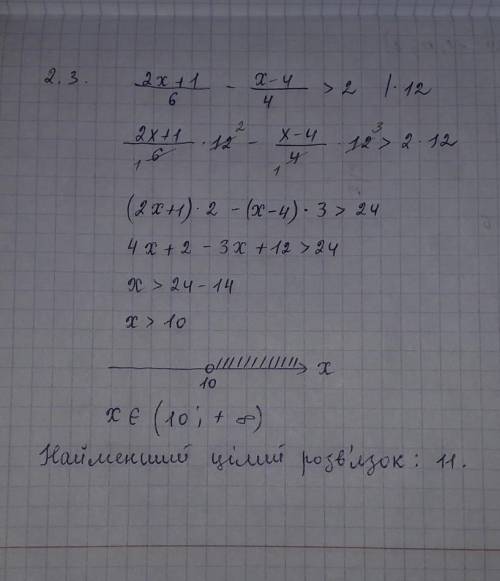 2.3. (2x+1)/6 - (x-4)/4 > 2 |·12
(2x+1)/6 1 · 12 2 - (x-4)/4 1 · 12 3 > 2·12
(2x+1)·2 - (x-4)·3 > 24
4x+2-3x+12>24
x > 24-14
x > 10
10 x
x ∈ (10; + ∞)
Найменший цілий розв'язок: 11.